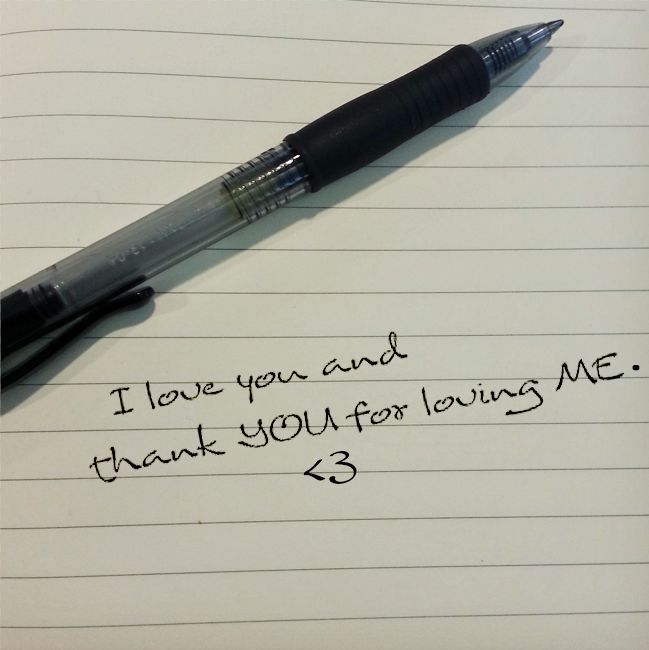 I love you and
thank YOU for loving ME.
<3